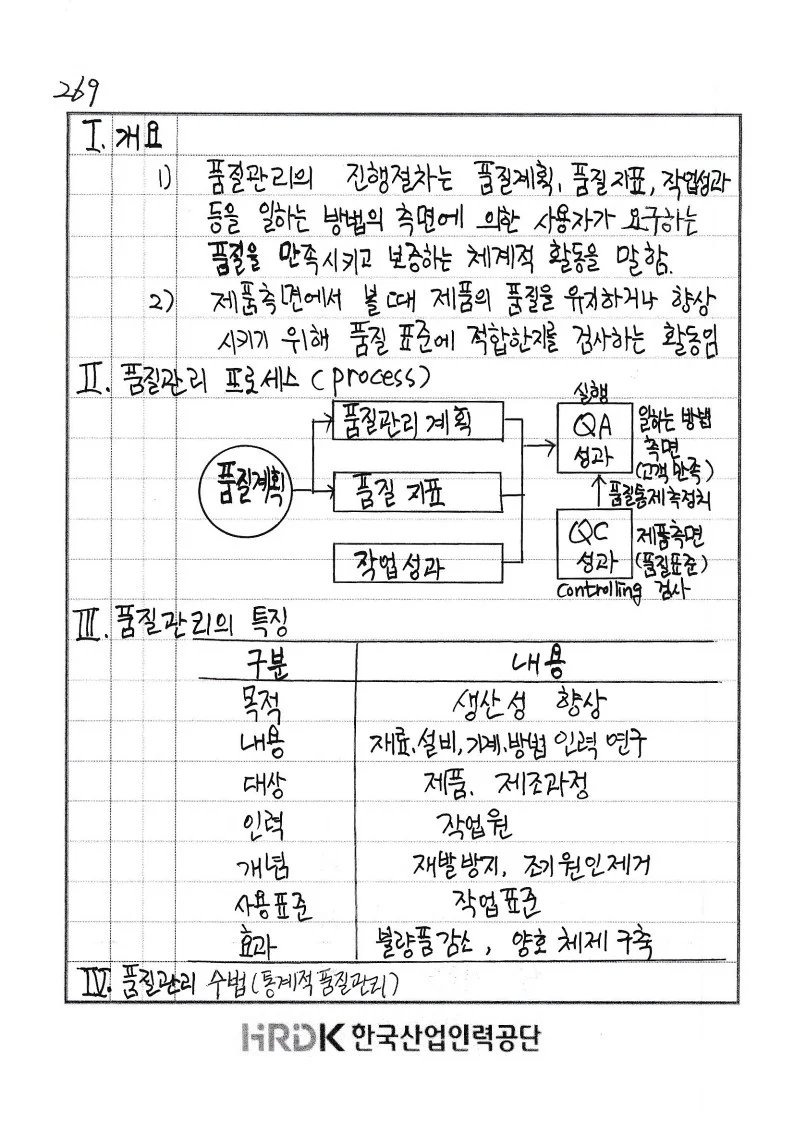 269
I. 개요
1) 품질관리의 진행절차는 품질계획, 품질지표, 작업성과
등을 일하는 방법의 측면에 의한 사용자가 요구하는
품질을 만족시키고 보증하는 체계적 활동을 말함.
2) 제품측면에서 볼때 제품의 품질을 유지하거나 향상
시키기 위해 품질 표준에 적합한지를 검사하는 활동임
II. 품질관리 프로세스(process)
품질계획
품질관리 계획
품질 지표
작업성과
실행
QA
성과
일하는 방법
측면
(고객만족)
품질통제측정치
QC
성과
제품측면
(품질표준)
Controlling 검사
III. 품질관리의 특징
구분 내용
목적 생산성 향상
내용 재료,설비,기계,방법 인력 연구
대상 제품, 제조과정
인력 작업원
개념 재발방지, 조기원인제거
사용표준 작업표준
효과 불량품감소, 양호 체제 구축
IV. 품질관리 수법(통계적품질관리)
HRDK 한국산업인력공단